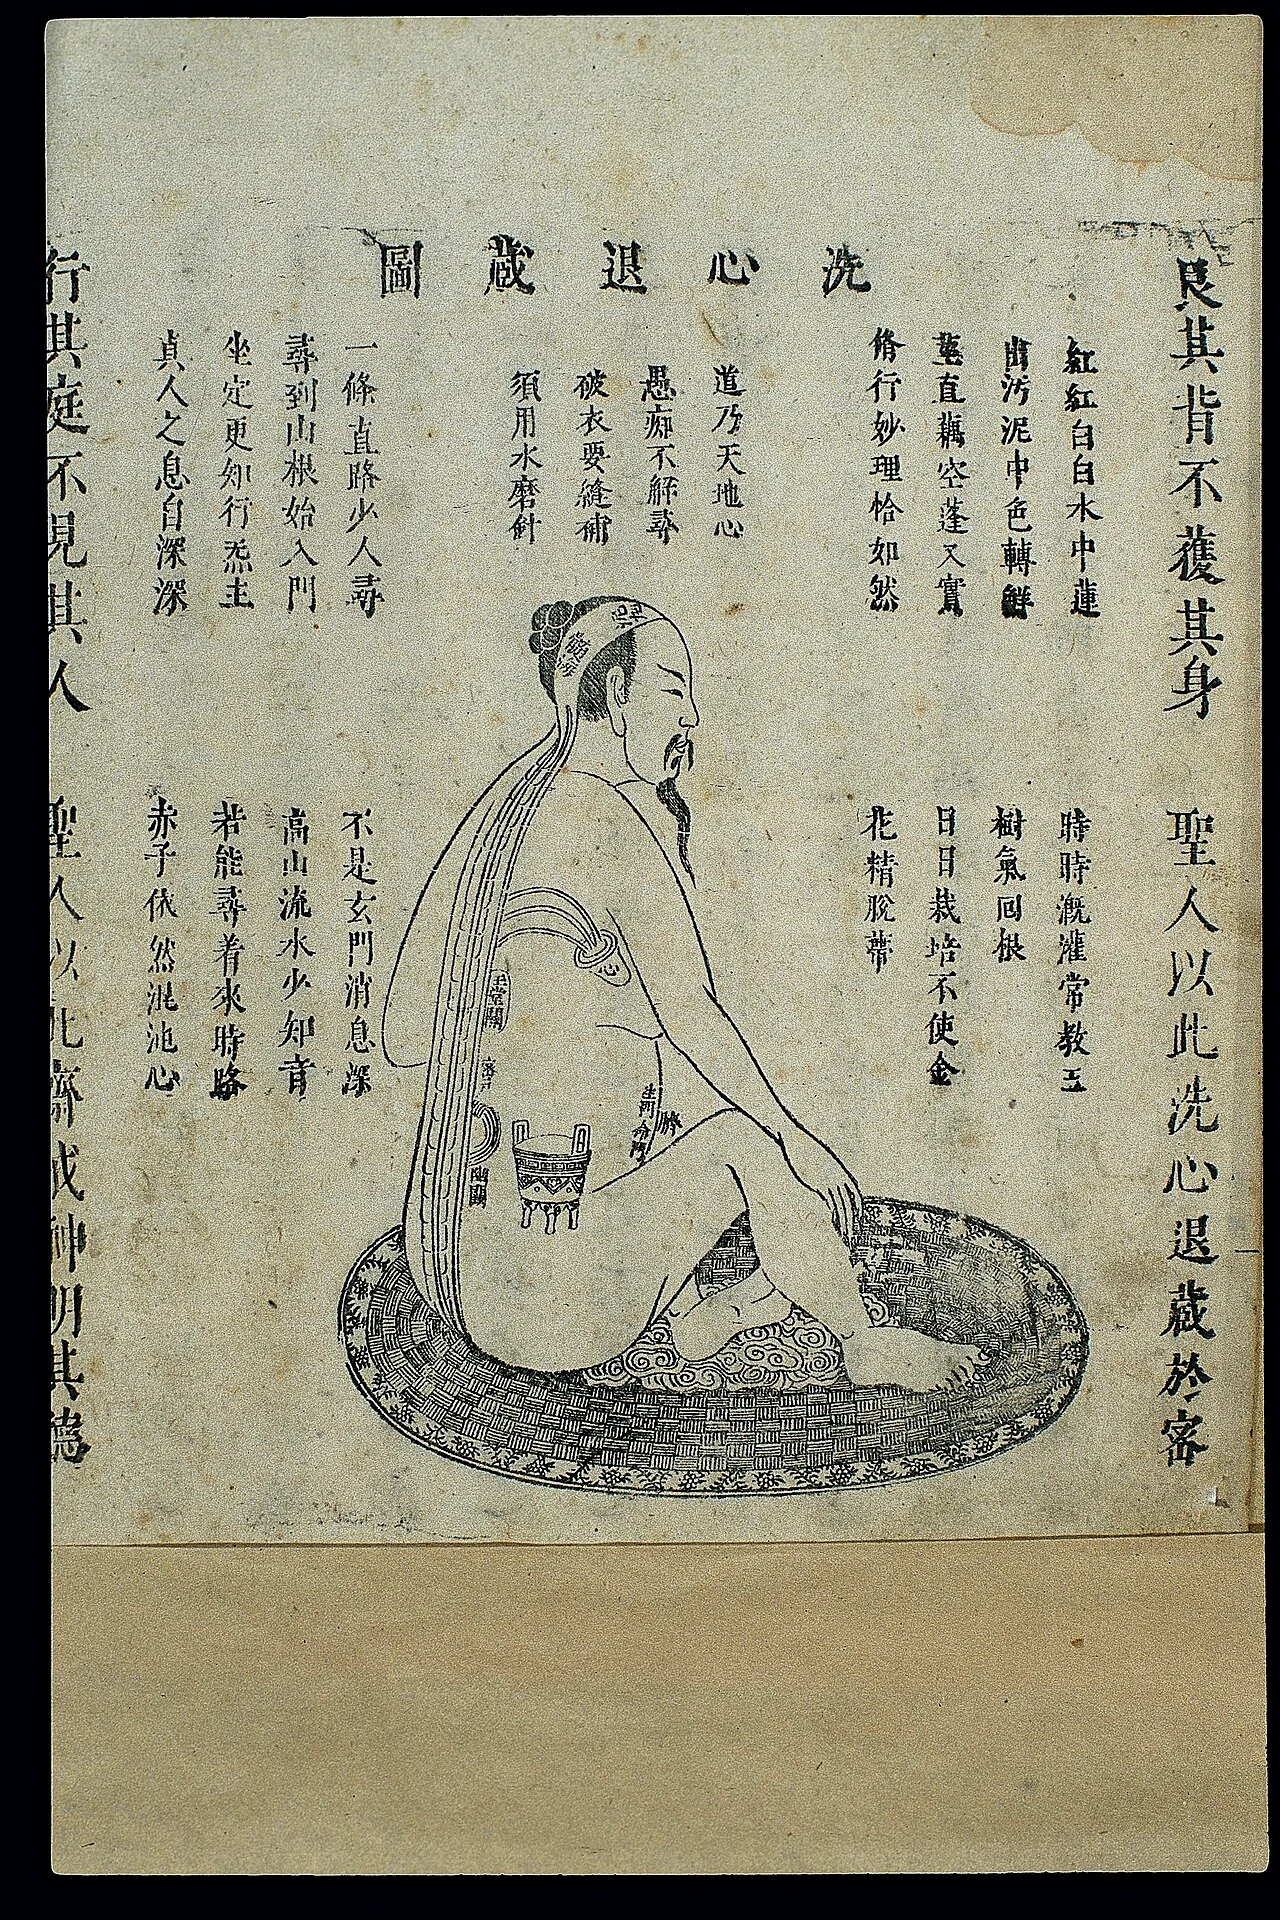 洗心退蔵圖
艮其背不獲其身　聖人以此洗心退蔵於密
紅紅白白水中蓮
出污泥中色轉鮮
莖直藕空蓬又實
脩行妙理恰如然
道乃天地心
愚痴不解尋
破衣要縫補
須用水磨針
一條直路少人尋
尋到山根始入門
坐定更知行炁主
貞人之息自深深
時時溉灌常教玉
樹氣回根
日日栽培不使金
花精脫蒂
不是玄門消息深
高山流水少知音
若能尋着來時路
赤子依然混沌心
行其庭不見其人　聖人以此齋戒神明其德
心
玉堂關
臍
生門
命門